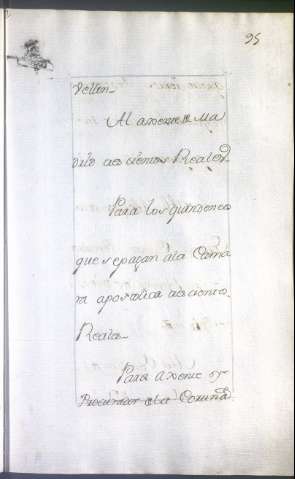 95
Vellon
Al
dito doscientos Reales
Para los quindenios
que sepagan ala Cama
ra apostolica doscientos
Reales
Para
Procurador dela Coruña